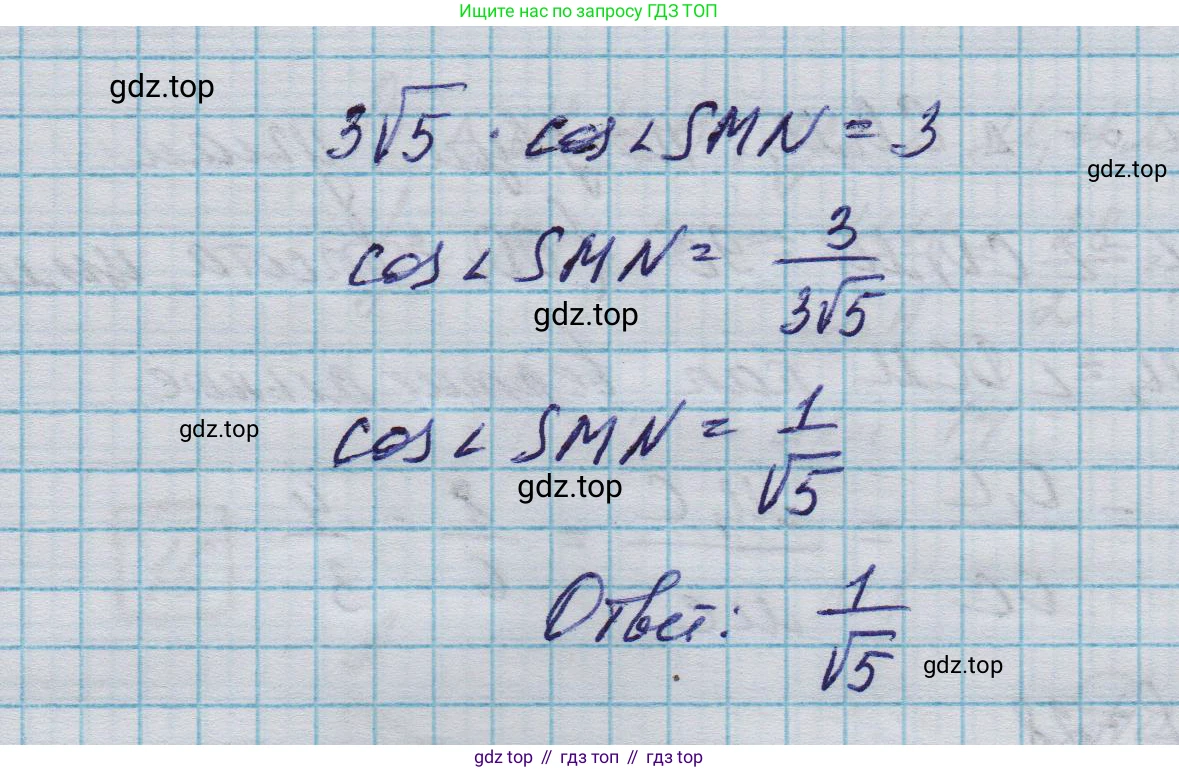 Ищите нас по запросу ГДЗ ТОП
gdz.top
3√5 · cos∠SMN = 3
gdz.top
cos∠SMN = 3/(3√5)
gdz.top
cos∠SMN = 1/√5
gdz.top
gdz.top
Ответ: 1/√5
gdz.top
gdz top // гдз топ // гдз top